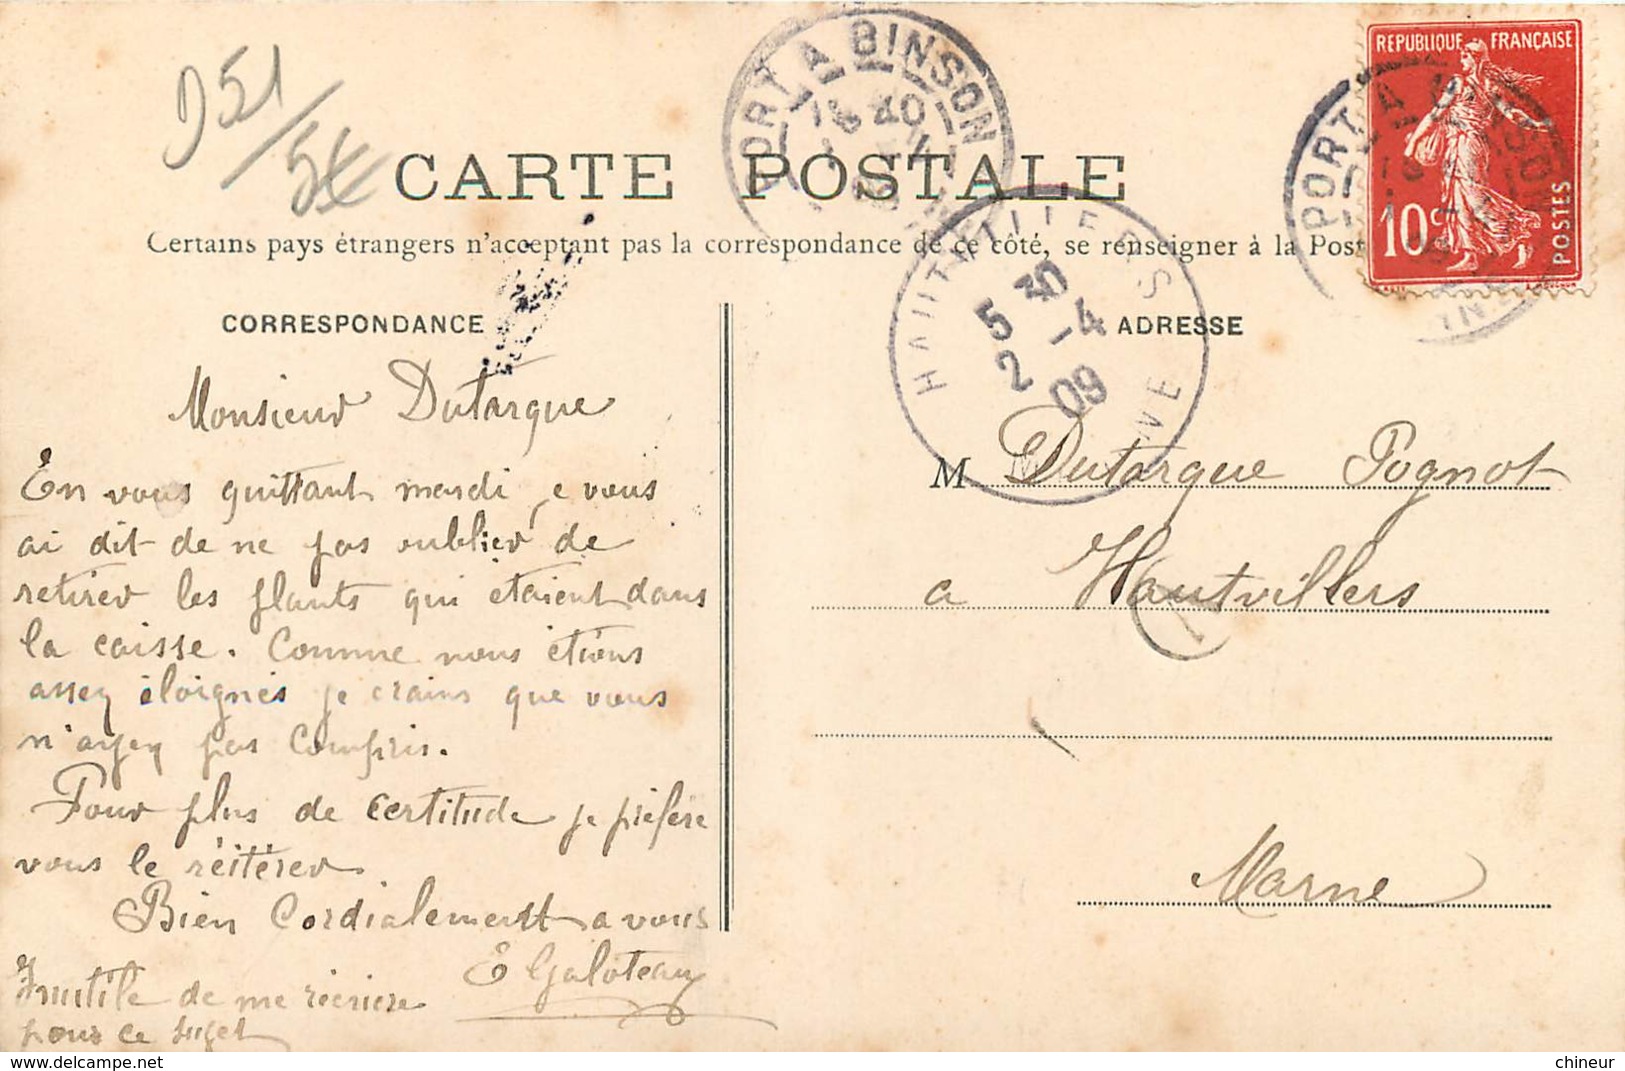 D 51 / 5€
PORT A BINSON
REPUBLIQUE FRANÇAISE
10c
POSTES
PORT A BINSON
CARTE POSTALE
Certains pays étrangers n'acceptant pas la correspondance de ce côté, se renseigner à la Post
HAUTVILLERS
5 30
2 -4
09
MARNE
CORRESPONDANCE
ADRESSE
Monsieur Dutarque
En vous quittant mardi je vous
ai dit de ne pas oublier de
retirer les plants qui étaient dans
la caisse. Comme nous étions
assez éloignés je crains que vous
n'ayez pas compris.
Pour plus de certitude je préfère
vous le réitérer
Bien Cordialement a vous
E Galoteau
Inutile de me récrire
pour ce sujet
M Dutarque Pognot
a Hautvillers
Marne
chineur